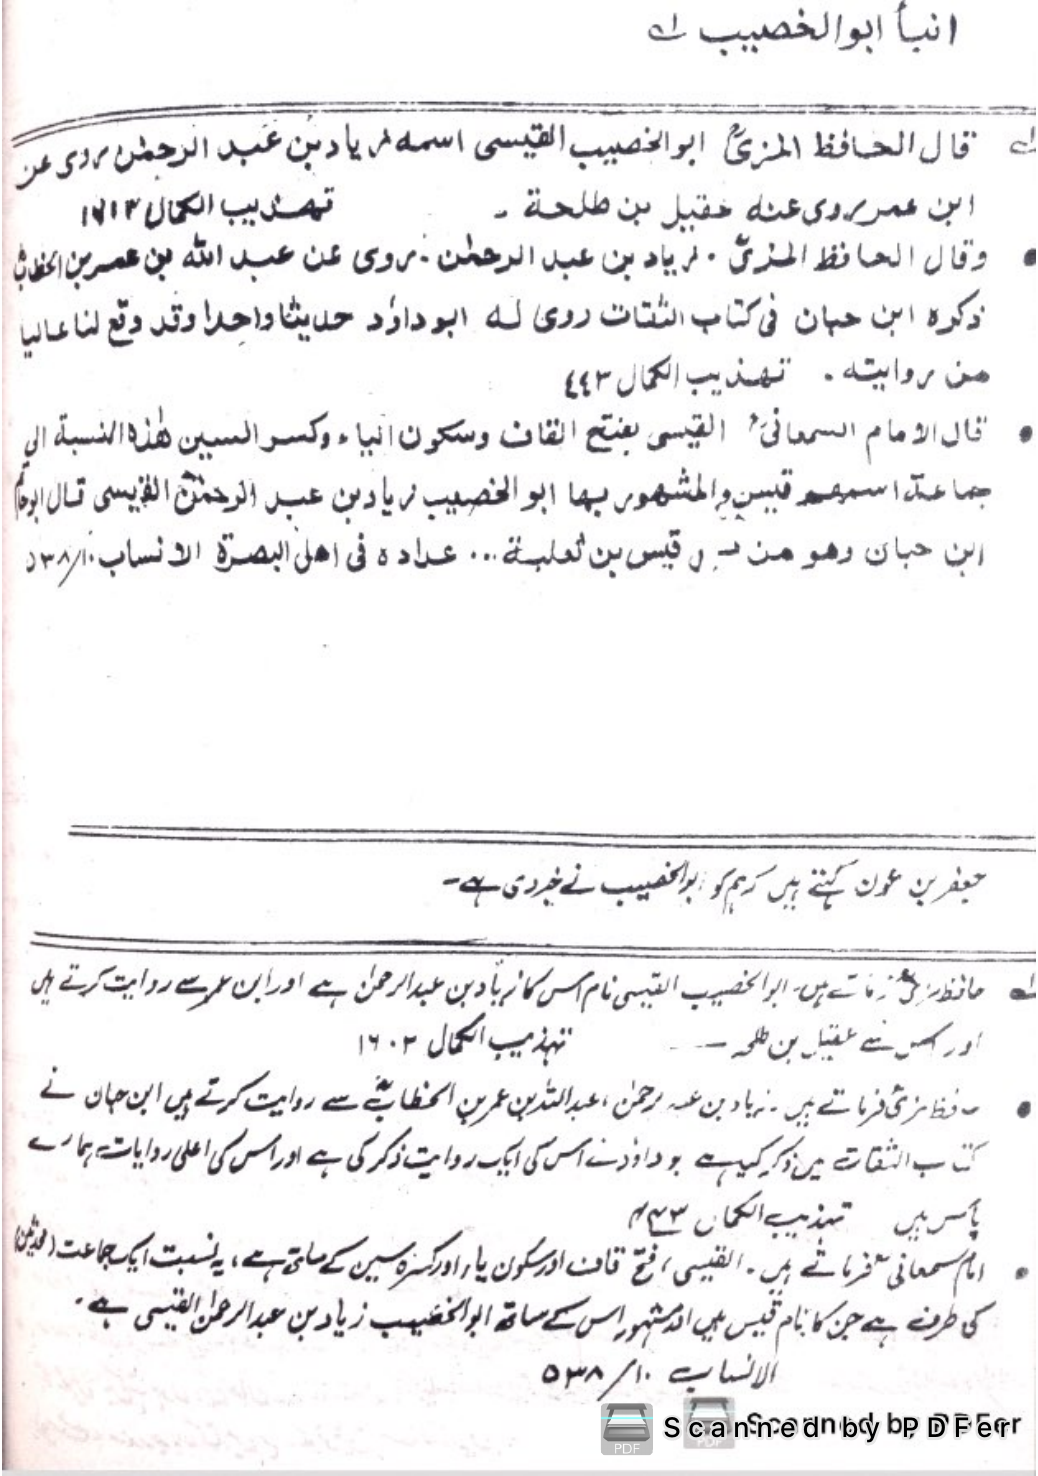 انبأ ابوالخصیب ۱؎
۱؎ قال الحافظ المزیؒ ابوالخصیب القیسی اسمہ زیاد بن عبد الرحمٰن روی عن
ابن عمر روی عنہ عقیل بن طلحۃ ۔ تہذیب الکمال ۱۶۱۳
• وقال الحافظ المزیؒ ۔ زیاد بن عبد الرحمٰن ۔ روی عن عبد اللہ بن عمر بن الخطاب
ذکرہ ابن حبان فی کتاب الثقات روی لہ ابوداؤد حدیثا واحدا وقد وقع لنا عالیا
من روایتہ ۔ تہذیب الکمال ٤٤٣
• قال الامام السمعانیؒ القیسی بفتح القاف وسکون الیاء وکسر السین ھٰذہ النسبۃ الی
جماعۃ اسمھم قیس والمشھور بھا ابو الخصیب زیاد بن عبد الرحمٰن القیسی قال ابوحاتم
ابن حبان وھو من قیس بن ثعلبۃ ... عدادہ فی اھل البصرۃ الانساب ۱۰/۵۳۸
جعفر بن عون کہتے ہیں کہ ہم کو ابوالخصیب نے خبر دی ہے۔
۱؎ حافظ مزیؒ فرماتے ہیں۔ ابوالخصیب القیسی نام اس کا زیاد بن عبدالرحمٰن ہے اور ابن عمر سے روایت کرتے ہیں
اور اس سے عقیل بن طلحہ ـــ تہذیب الکمال ۱۶۰۳
• حافظ مزیؒ فرماتے ہیں ۔ زیاد بن عبد الرحمٰن ، عبداللہ بن عمر بن الخطابؓ سے روایت کرتے ہیں ابن حبان نے
کتاب الثقات میں ذکر کیا ہے ابوداؤد نے اس کی ایک روایت ذکر کی ہے اور اس کی اعلی روایات ہمارے
پاس ہیں تہذیب الکمال ۴۴۳
• امام سمعانیؒ فرماتے ہیں ۔ القیسی ، فتح قاف اور سکون یاء اور کسرہ سین کے ساتھ ہے ، یہ نسبت ایک جماعت (محدثین)
کی طرف ہے جن کا نام قیس ہیں اور مشہور اس کے ساتھ ابوالخصیب زیاد بن عبدالرحمٰن القیسی ہے ۔
الانساب ۱۰/۵۳۸
Scanned by PDFer
Scanned by PDFer